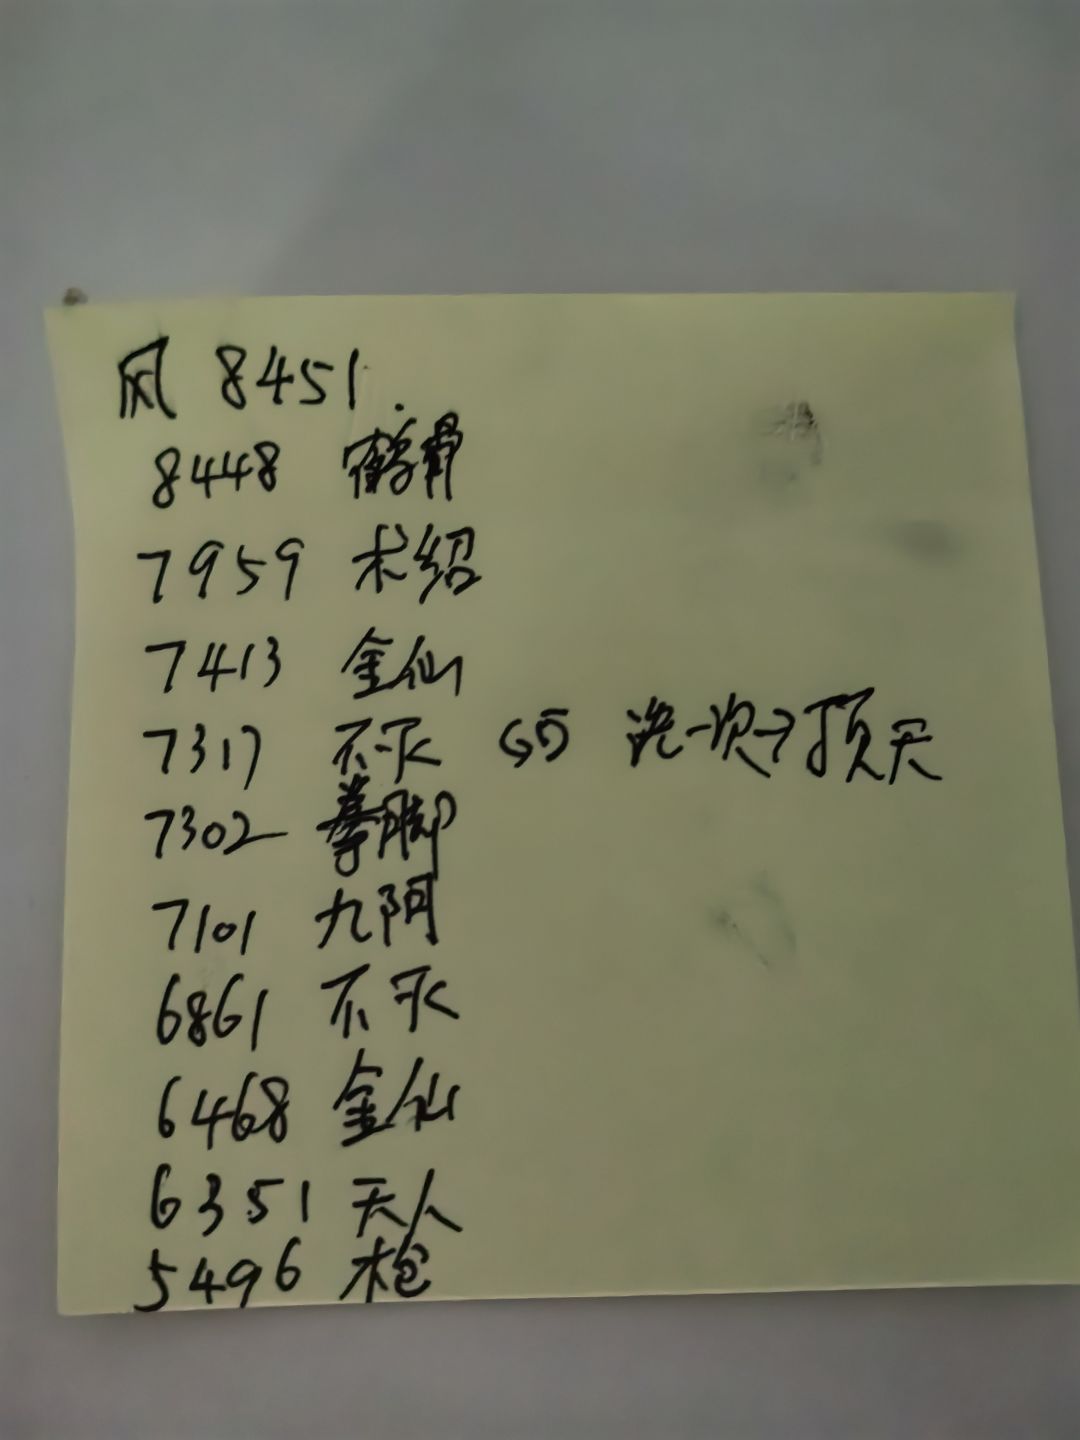 风 8451.
8448 鹤骨
7959 术绍
7413 金仙
7317 不灭 洗一次→顶天
7302 拳脚
7101 九阿
6861 不灭
6468 金仙
6351 天人
5496 枪